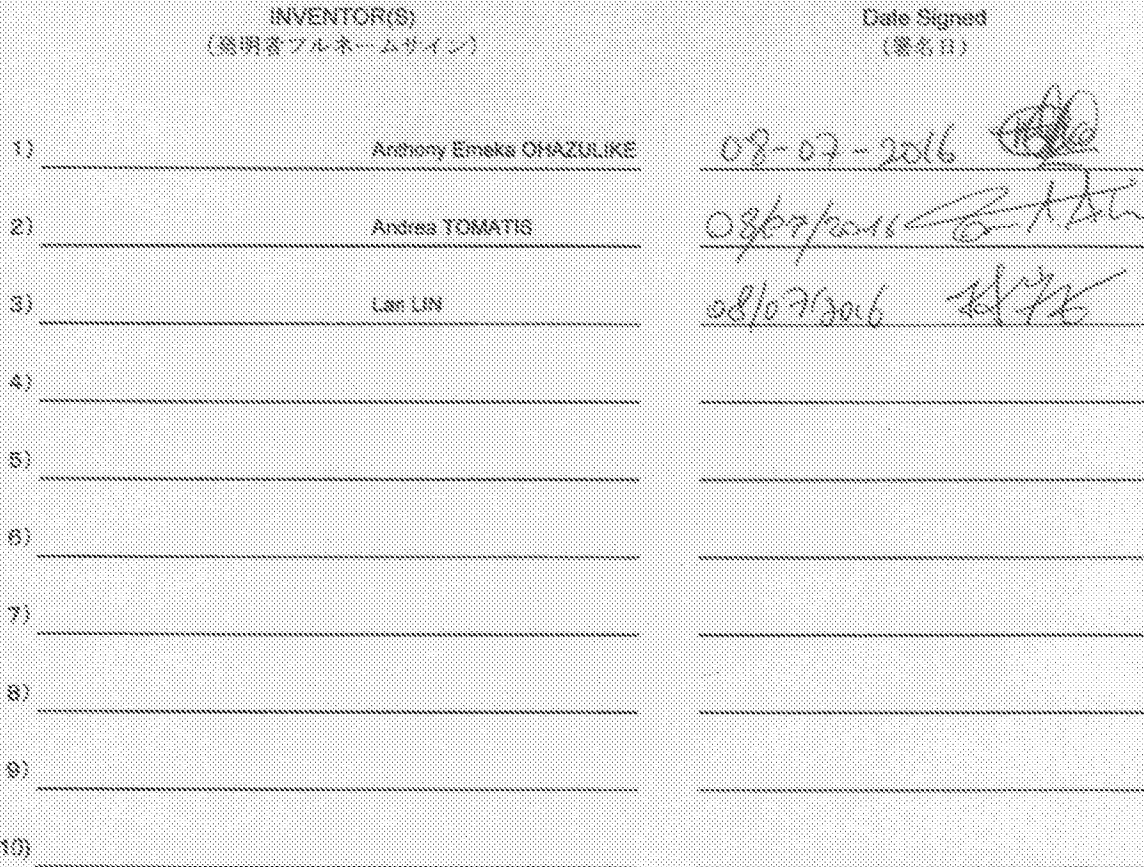 INVENTOR(S) Date Signed
(発明者フルネームサイン) (署名日)
1) Anthony Emeka OHAZULIKE 08-07-2016
2) Andrea TOMATIS 08/07/2016
3) Lan LIN 08/07/2016
4)
5)
6)
7)
8)
9)
10)